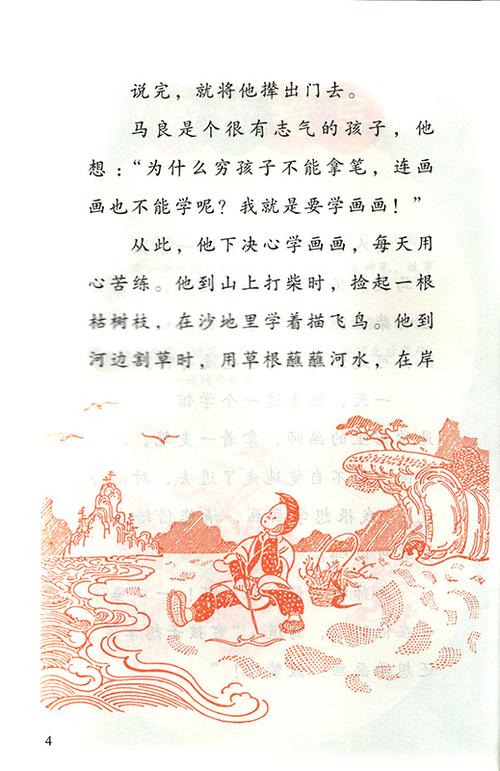 说完，就将他撵出门去。
马良是个很有志气的孩子，他
想：“为什么穷孩子不能拿笔，连画
画也不能学呢？我就是要学画画！”
从此，他下决心学画画，每天用
心苦练。他到山上打柴时，捡起一根
枯树枝，在沙地里学着描飞鸟。他到
河边割草时，用草根蘸蘸河水，在岸
一天，他走过一个学馆
4